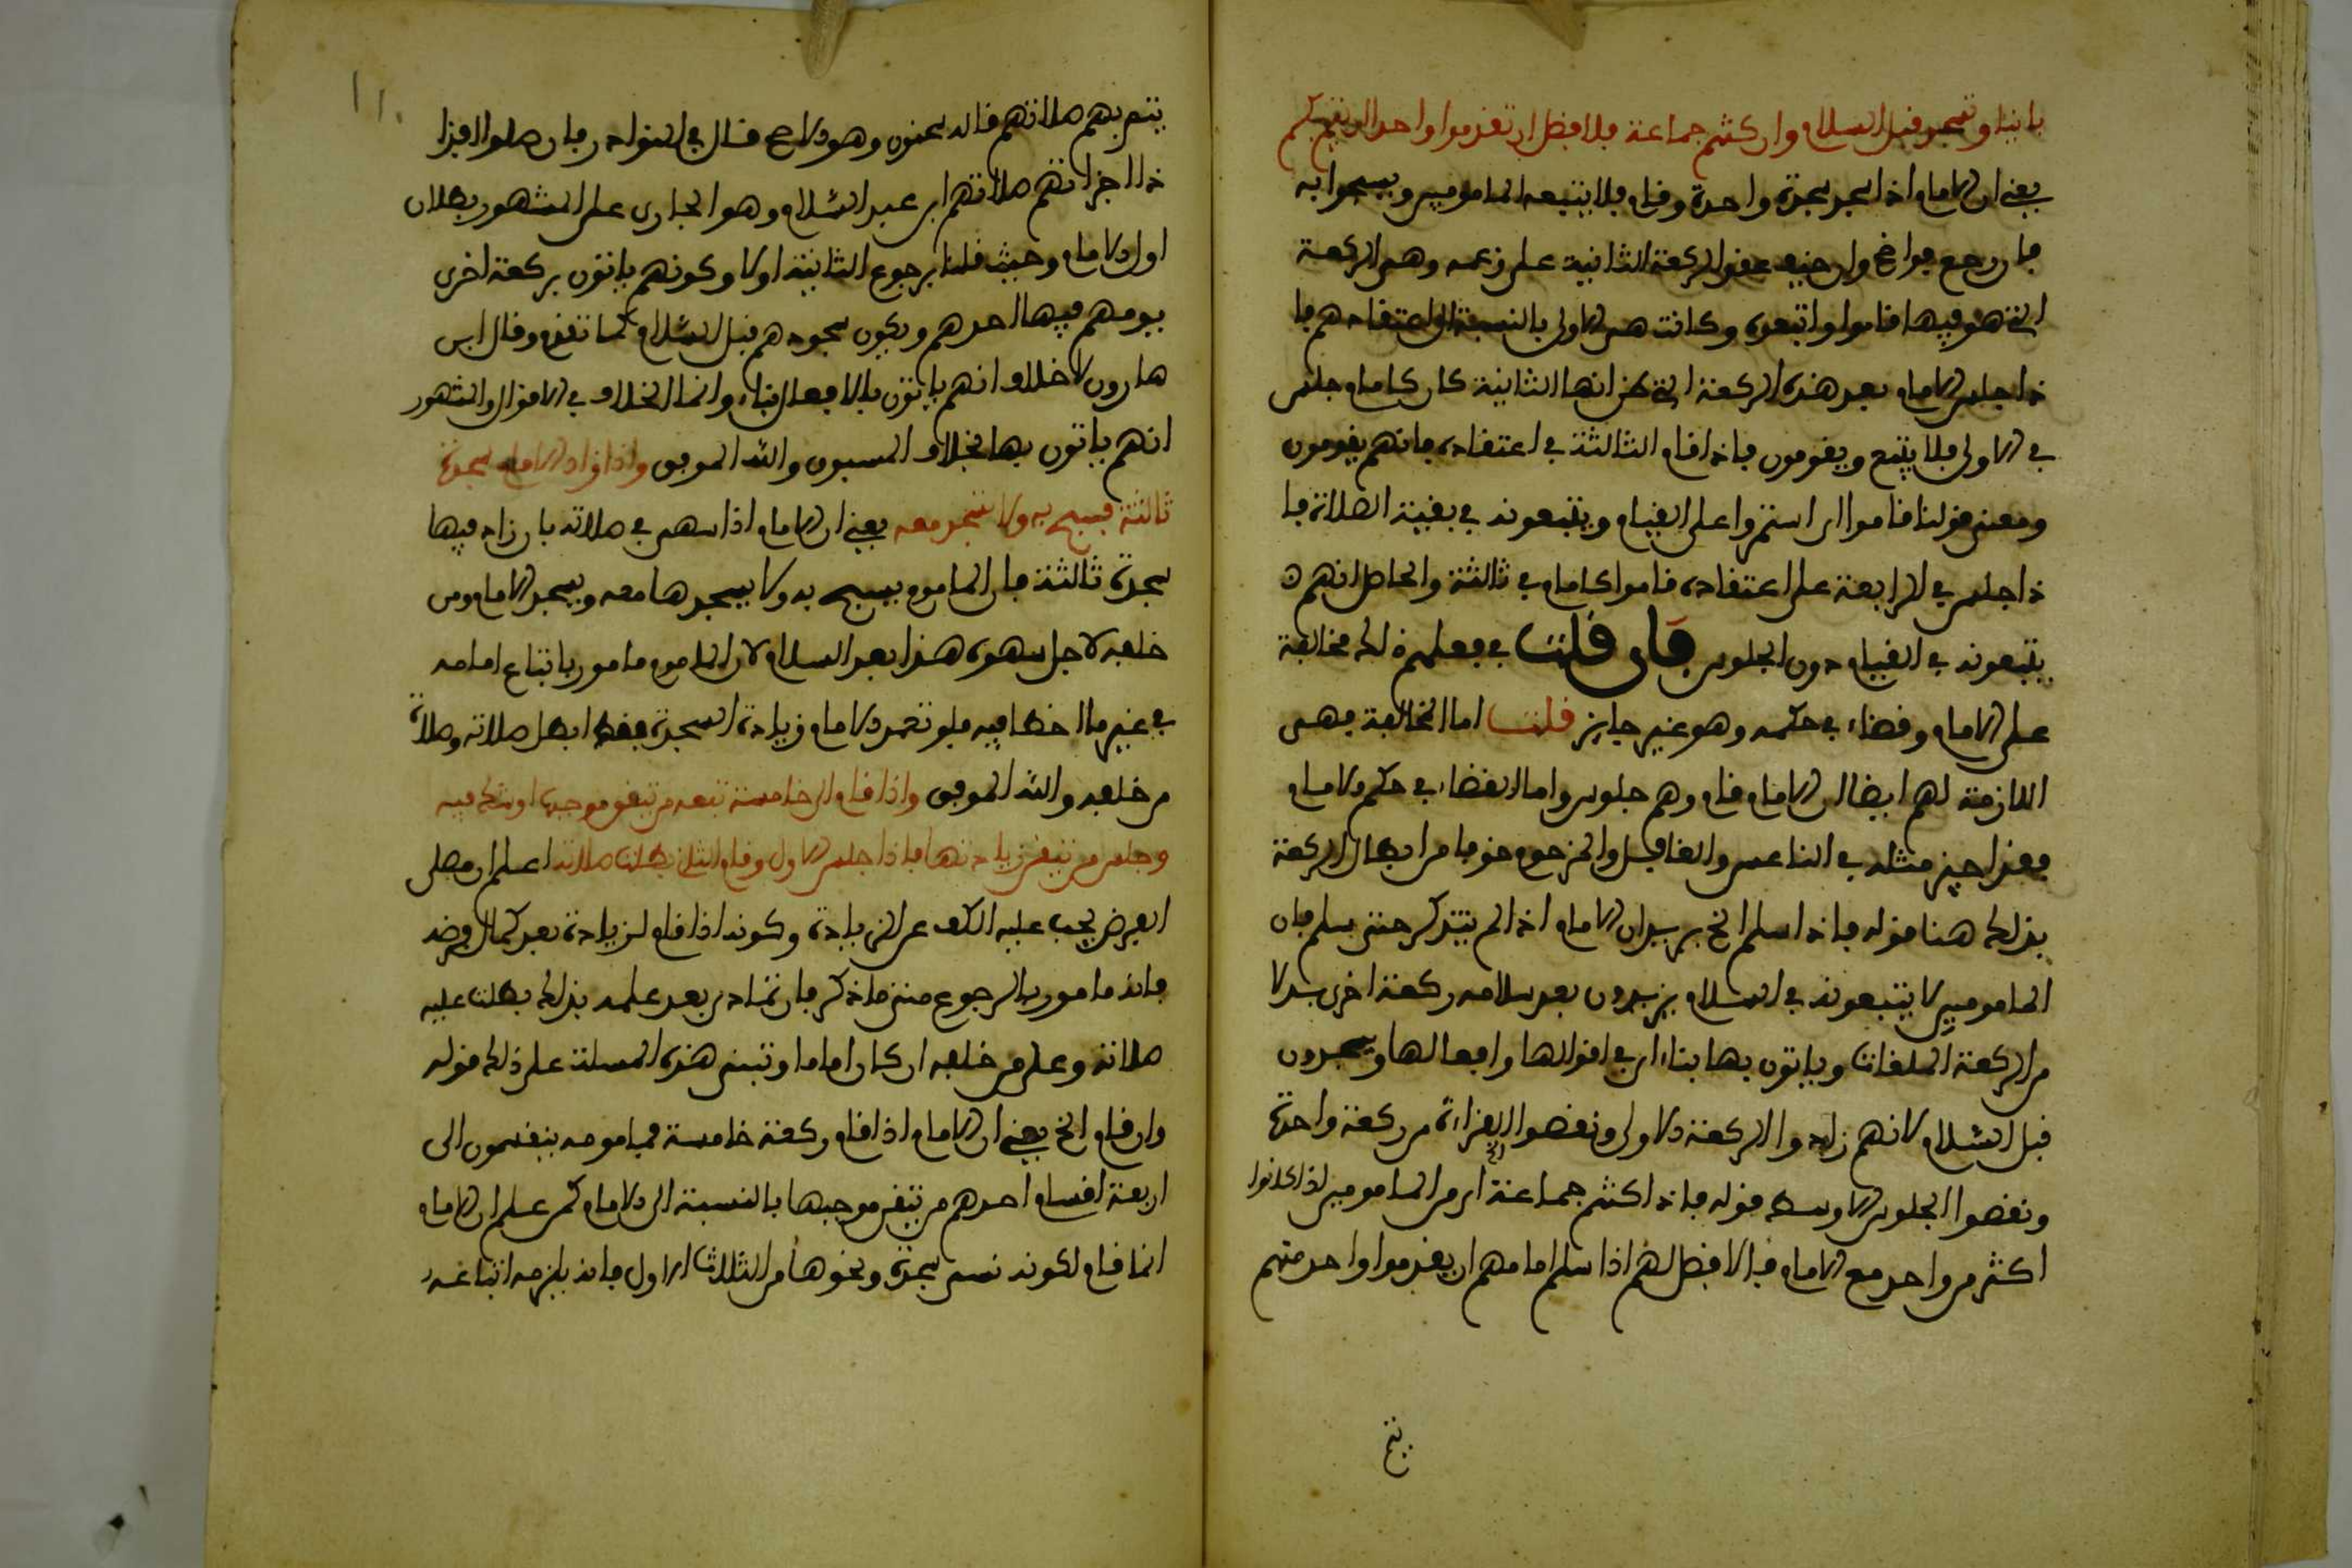 بانيا وتسجد قبل السلام وان كنتم جماعة فالافضل ان تقدموا واحدا يتم بكم
يعني ان الامام اذا سجد سجدة واحدة وقام فلا يتبعه المامومين ويسبحوا به
فان رجع فواضح وان خيف عقد الركعة الثانية على زعمه وهي الركعة
التي هو فيها قاموا واتبعوه وكانت هي الاولى بالنسبة الى اعتقادهم فا
ذا جلس الامام بعد هذه الركعة التي ظن انها الثانية كان كامام جلس
في الاولى فلا يتبع ويقومون فاذا قام الثالثة في اعتقاده فانهم يقومون
ومعنى قولنا قاموا اي استمروا على القيام ويتبعونه في بقية الصلاة فا
ذا جلس في الرابعة على اعتقاده قاموا كامام في ثالثة والحاصل انهم
يتبعونه في القيام دون الجلوس فان قلت في فعلهم ذلك مخالفة
على الامام وقضاء في حكمه وهو غير جايز قلت اما المخالفة فهي
اللازمة لهم ايضا لان الامام قام وهم جلوس واما القضاء في حكم الامام
فقد اجيز مثله في الناعس والغافل والمزحوم خوفا من ابطال الركعة
بذلك هنا قوله فاذا سلم الخ يريد ان الامام اذا لم يتذكر حتى سلم فان
المامومين لا يتبعونه في السلام يزيدون بعد سلامه ركعة اخرى بدلا
من الركعة الملغات وياتون بها بناء اي في اقوالها وافعالها ويسجدون
قبل السلام لانهم زادوا الركعة الاولى ونقصوا القراءة من ركعة واحدة
ونقصوا الجلوس الاوسط قوله فاذا كنتم جماعة اي من المامومين اذا كانوا
اكثر من واحد مع الامام فالافضل لهم اذا سلم امامهم ان يقدموا واحد منهم
يتم
١١٠
يتم بهم صلاتهم قاله سحنون وهو الاصح قال في النوادر فان صلوا افذا
ذا اجزاتهم صلاتهم ابن عبد السلام وهو الجاري على المشهور بطلان
اولى الامام وحيث قلنا برجوع الثانية اولا وكونهم ياتون بركعة اخرى
يومهم فيها احدهم ويكون سجودهم قبل السلام كما تقدم وقال ابن
هارون لا خلاف انهم ياتون بالافعال بناء وانما الخلاف في الاقوال والمشهور
انهم ياتون بها بخلاف المسبوق والله الموفق واذا زاد الامام سجدة
ثالثة فسبح به ولا تسجد معه يعني ان الامام اذا سهى في صلاته بان زاد فيها
سجدة ثالثة فان الماموم يسبح به ولا يسجدها معه ويسجد الامام ومن
خلفه لاجل سهوه هذا بعد السلام لان الماموم مامور باتباع امامه
في غير ما اخطا فيه فلو تعمد الامام زيادة السجدة فقد ابطل صلاته وصلاة
من خلفه والله الموفق واذا قام الى خامسة تبعه من تيقن موجبها او شك فيه
وجلس من تيقن زيادتها فاذا جلس الاول وقام الثاني بطلت صلاته اعلم ان مصلي
الفرض يجب عليه الكف عن الزيادة وكونه اذا قام لزيادة بعد كمال فرضه
فانه مامور بالرجوع متى ما ذكر فان تمادى بعد علمه بذلك بطلت عليه
صلاته وعلى من خلفه ان كان اماما وتبنى هذه المسلة على ذلك قوله
وان قام الخ يعني ان الامام اذا قام ركعة خامسة فمامومه ينقسمون الى
اربعة اقسام احدهم من تيقن موجبها بالنسبة الى الامام كمن علم ان الامام
انما قام لكونه نسى سجدة ونحوها من الثلاث الاول فانه يلزمه اتباعه